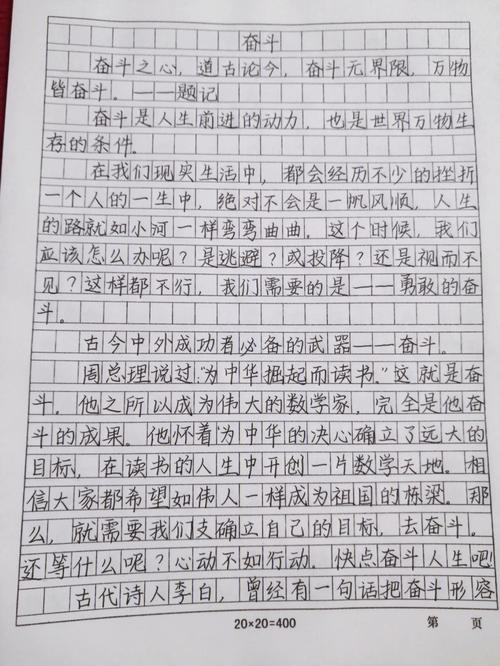 奋斗
奋斗之心，道古论今，奋斗无界限，万物
皆奋斗。——题记
奋斗是人生前进的动力，也是世界万物生
存的条件。
在我们现实生活中，都会经历不少的挫折
一个人的一生中，绝对不会是一帆风顺，人生
的路就如小河一样弯弯曲曲，这个时候，我们
应该怎么办呢？是逃避？或投降？还是视而不
见？这样都不行，我们需要的是——勇敢的奋
斗。
古今中外成功者必备的武器——奋斗。
周总理说过：“为中华掘起而读书。”这就是奋
斗。他之所以成为伟大的数学家，完全是他奋
斗的成果。他怀着“为中华的决心确立了远大的
目标，在读书的人生中开创一片数学天地。相
信大家都希望如伟人一样成为祖国的栋梁。那
么，就需要我们支确立自己的目标，去奋斗。
还等什么呢？心动不如行动。快点奋斗人生吧！
古代诗人李白，曾经有一句话把奋斗形容
20×20=400 第 页